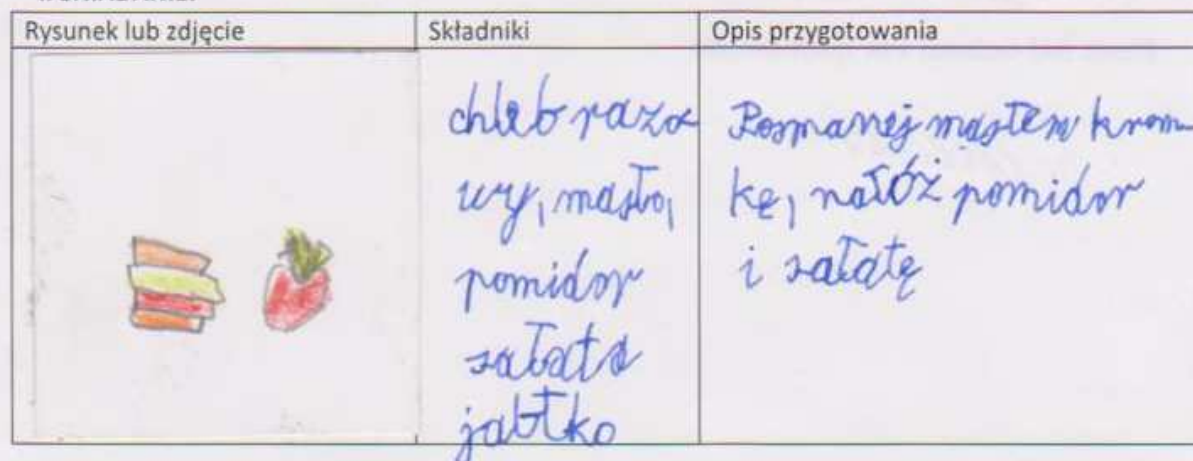 Rysunek lub zdjęcie
Składniki
Opis przygotowania
chleb razo
wy, masło,
pomidor
sałata
jabłko
masłem krom
kę, nałóż pomidor
i sałatę